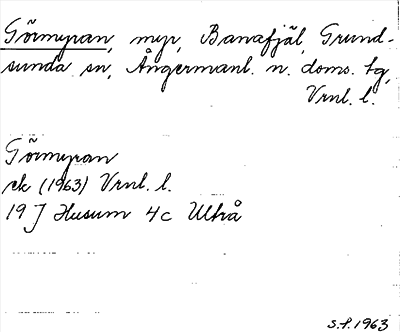 Görmyran, myr, Banafjäl, Grund-
sunda sn, Ångermanl. n. doms. tg,
Vrnl. l.
Görmyran
ek (1963) Vrnl. l.
19 J Husum 4c Ultrå
s.f. 1963